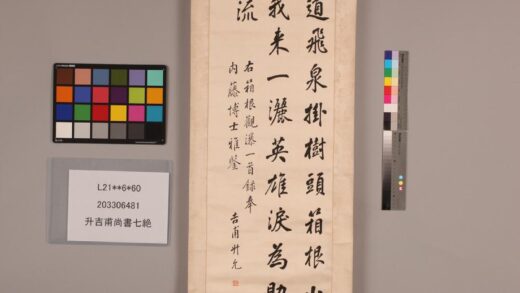 道飛泉掛樹頭箱根山
我来一灑英雄淚為助
流
右箱根觀瀑一首録奉
内藤博士雅鑒
吉甫升允
L21**6*60
203306481
升吉甫尚書七絶